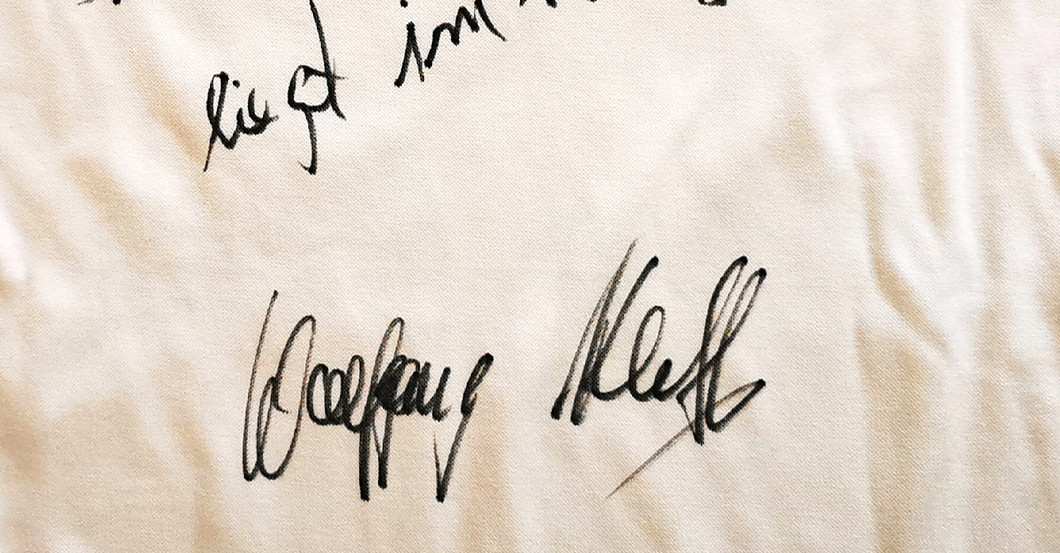 liegt im
Wolfgang Kleff